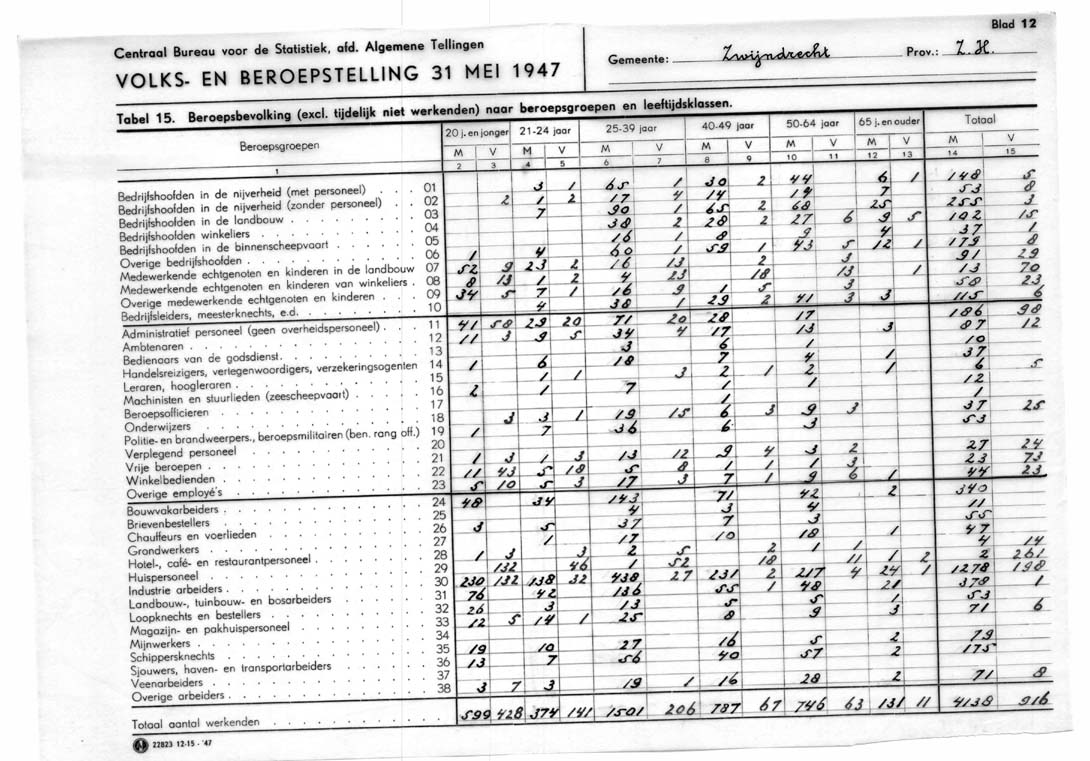 Blad 12
Centraal Bureau voor de Statistiek, afd. Algemene Tellingen
VOLKS- EN BEROEPSTELLING 31 MEI 1947
Gemeente: Zwijndrecht Prov.: Z.H.
Tabel 15. Beroepsbevolking (excl. tijdelijk niet werkenden) naar beroepsgroepen en leeftijdsklassen.
Beroepsgroepen 20 j. en jonger 21-24 jaar 25-39 jaar 40-49 jaar 50-64 jaar 65 j. en ouder Totaal
M V M V M V M V M V M V M V
1 2 3 4 5 6 7 8 9 10 11 12 13 14 15
Bedrijfshoofden in de nijverheid (met personeel) . . . 01 3 1 65 1 30 2 44 6 1 148 5
Bedrijfshoofden in de nijverheid (zonder personeel) . . . 02 2 1 2 17 4 14 14 7 53 8
Bedrijfshoofden in de landbouw . . . 03 7 90 1 65 2 68 25 255 3
Bedrijfshoofden winkeliers . . . 04 38 2 28 2 27 6 9 5 102 15
Bedrijfshoofden in de binnenscheepvaart . . . 05 16 1 8 9 4 37 1
Overige bedrijfshoofden . . . 06 1 4 60 1 59 1 43 5 12 1 179 8
Medewerkende echtgenoten en kinderen in de landbouw 07 52 9 23 2 16 13 2 3 91 29
Medewerkende echtgenoten en kinderen van winkeliers . 08 8 13 1 2 4 23 18 13 1 13 70
Overige medewerkende echtgenoten en kinderen . . . 09 34 5 7 1 16 9 1 5 3 58 23
Bedrijfsleiders, meesterknechts, e.d. . . . 10 4 38 1 29 2 41 3 3 115 6
Administratief personeel (geen overheidspersoneel) . . . 11 41 58 29 20 71 20 28 17 186 98
Ambtenaren . . . 12 11 3 9 5 34 4 17 13 3 87 12
Bedienaars van de godsdienst . . . 13 3 6 1 10
Handelsreizigers, vertegenwoordigers, verzekeringsagenten 14 1 6 18 7 4 1 37
Leraren, hoogleraren . . . 15 1 1 3 2 1 2 1 6 5
Machinisten en stuurlieden (zeescheepvaart) . . . 16 2 1 7 1 1 12
Beroepsofficieren . . . 17 1 1
Onderwijzers . . . 18 3 3 1 19 15 6 3 9 3 37 25
Politie- en brandweerpers., beroepsmilitairen (ben. rang off.) 19 1 7 36 6 3 53
Verplegend personeel . . . 20
Vrije beroepen . . . 21 1 3 1 3 13 12 9 4 3 2 27 24
Winkelbedienden . . . 22 11 43 5 18 5 8 1 1 1 3 23 73
Overige employé's . . . 23 5 10 5 3 17 3 7 1 9 6 1 44 23
Bouwvakarbeiders . . . 24 48 34 143 71 42 2 340
Brievenbestellers . . . 25 4 3 4 11
Chauffeurs en voerlieden . . . 26 3 5 37 7 3 55
Grondwerkers . . . 27 1 17 10 18 1 47
Hotel-, café- en restaurantpersoneel . . . 28 1 3 3 2 5 2 1 1 4 14
Huispersoneel . . . 29 132 46 1 52 18 11 1 2 2 261
Industrie arbeiders . . . 30 230 132 138 32 438 27 231 2 217 4 24 1 1278 198
Landbouw-, tuinbouw- en bosarbeiders . . . 31 76 42 136 55 1 48 21 378 1
Loopknechts en bestellers . . . 32 26 3 13 5 5 1 53
Magazijn- en pakhuispersoneel . . . 33 12 5 14 1 25 8 9 3 71 6
Mijnwerkers . . . 34
Schippersknechts . . . 35 19 10 27 16 5 2 79
Sjouwers, haven- en transportarbeiders . . . 36 13 7 56 40 57 2 175
Veenarbeiders . . . 37
Overige arbeiders . . . 38 3 7 3 19 1 16 28 2 71 8
Totaal aantal werkenden . . . 599 428 374 141 1501 206 787 67 746 63 131 11 4138 916
22823 12-15 - '47